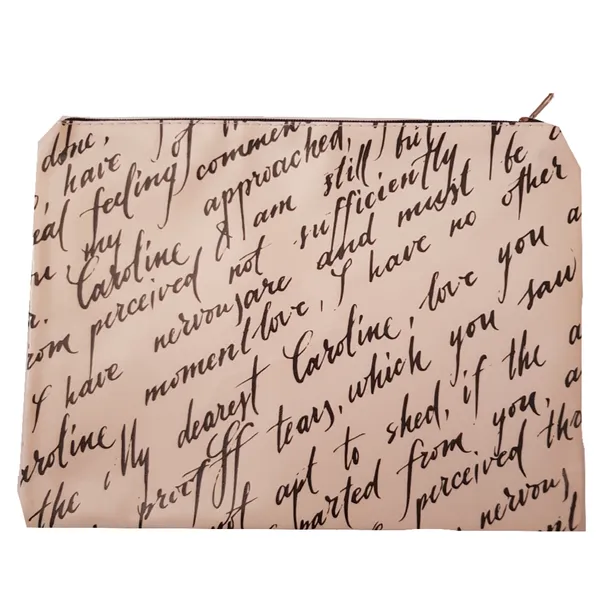 done,
have of
feeling commen
my approached, still
Caroline I am sufficiently be
perceived not and must other
I have nervous are I have no
moment love, love you a
My dearest Caroline, you saw
Caroline tears, which if the a
the proof apt to shed, you, a
not parted from the
perceived
nervous